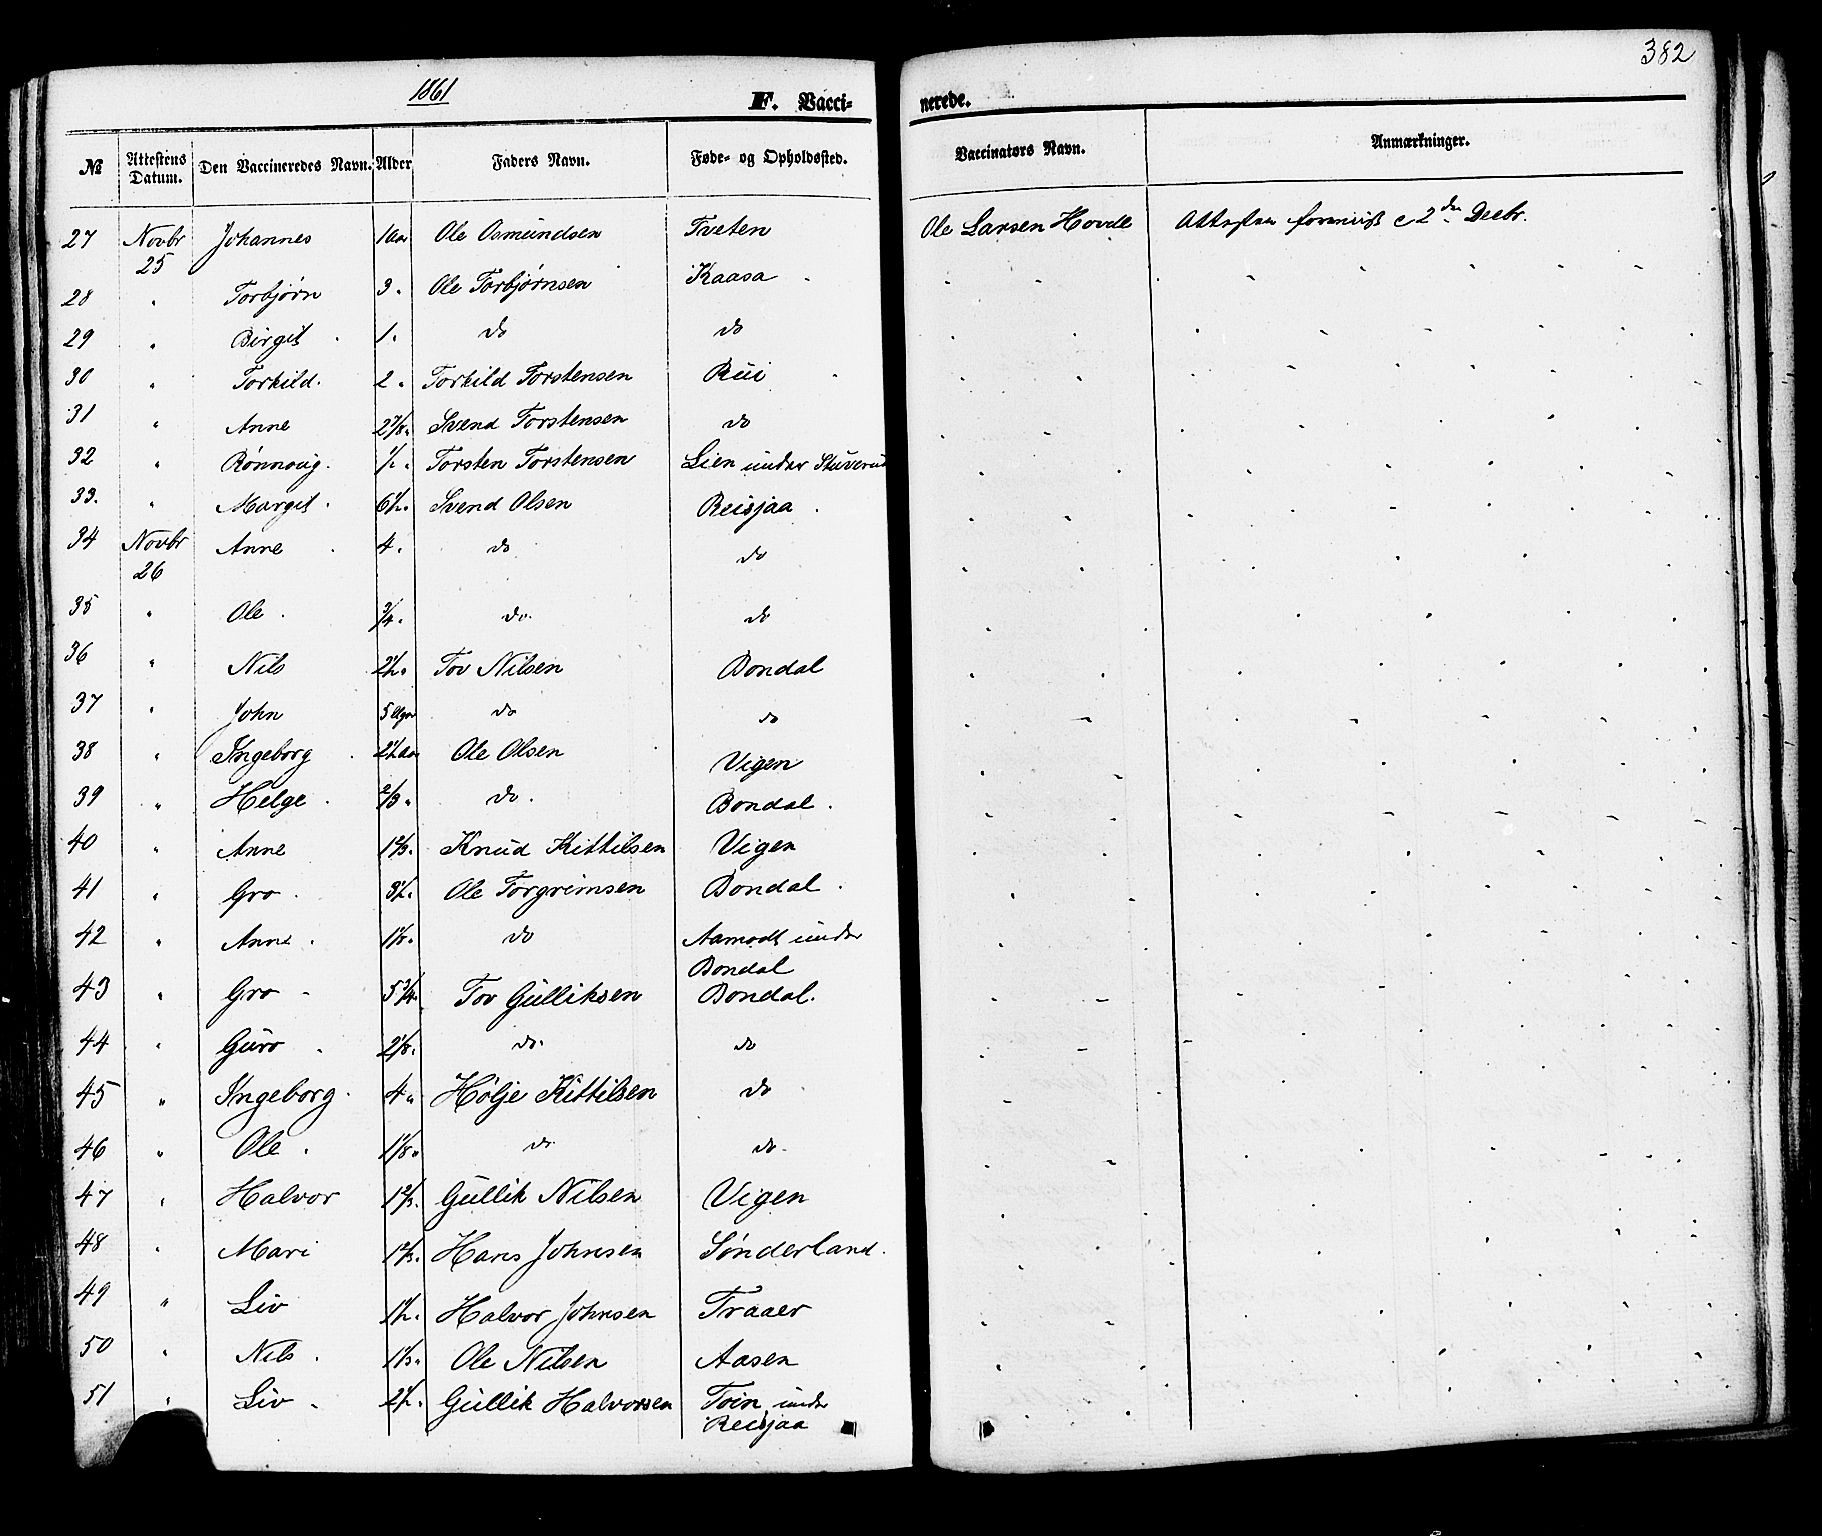 382
1861
F. Vacci-
nerede.
№ Attestens Datum. Den Vaccineredes Navn. Alder Faders Navn. Føde- og Opholdssted. Vaccinators Navn. Anmærkninger.
27 Novbr 25 Johannes 1 Aar Ole Osmundsen Tveten Ole Larsen Hovde Attesten forevist 2den Decbr.
28 " Torbjørn 3 " Ole Torbjørnsen Kaasa
29 " Birgit 1 " do do
30 " Torkild 2 " Torkild Torstensen Rui
31 " Anne 2 7/8 " Svend Torstensen do
32 " Rønnoug ½ " Torsten Torstensen Lien under Stuverud
33. " Margit 6½ " Svend Olsen Reisjaa
34 Novbr 26 Anne 4 " do do
35 " Ole ¾ " do do
36 " Nils 2½ " Tov Nilsen Bondal
37 " John 5 Uger do do
38 " Ingeborg 2½ Aar Ole Olsen Vigen
39 " Helge 2/3 " do Bondal
40 " Anne 1 2/3 " Knud Kittilsen Vigen
41 " Gro 3½ " Ole Torgrimsen Bondal
42 " Anne 1 1/8 " do Aamodt under Bondal
43 " Gro 5¾ " Tov Gulliksen Bondal.
44 " Guro 2 1/8 " do do
45 " Ingeborg 4 " Hølje Kittilsen do
46 " Ole 1 1/8 " do do
47 " Halvor Gullik Nilsen Vigen
48 " Mari Hans Johnsen Sønderland
49 " Liv 1½ " Halvor Johnsen Traaer
50 " Nils 1 1/3 " Ole Nilsen Aasen
51 " Liv 2½ " Gullik Halvorsen Toin under Reisjaa